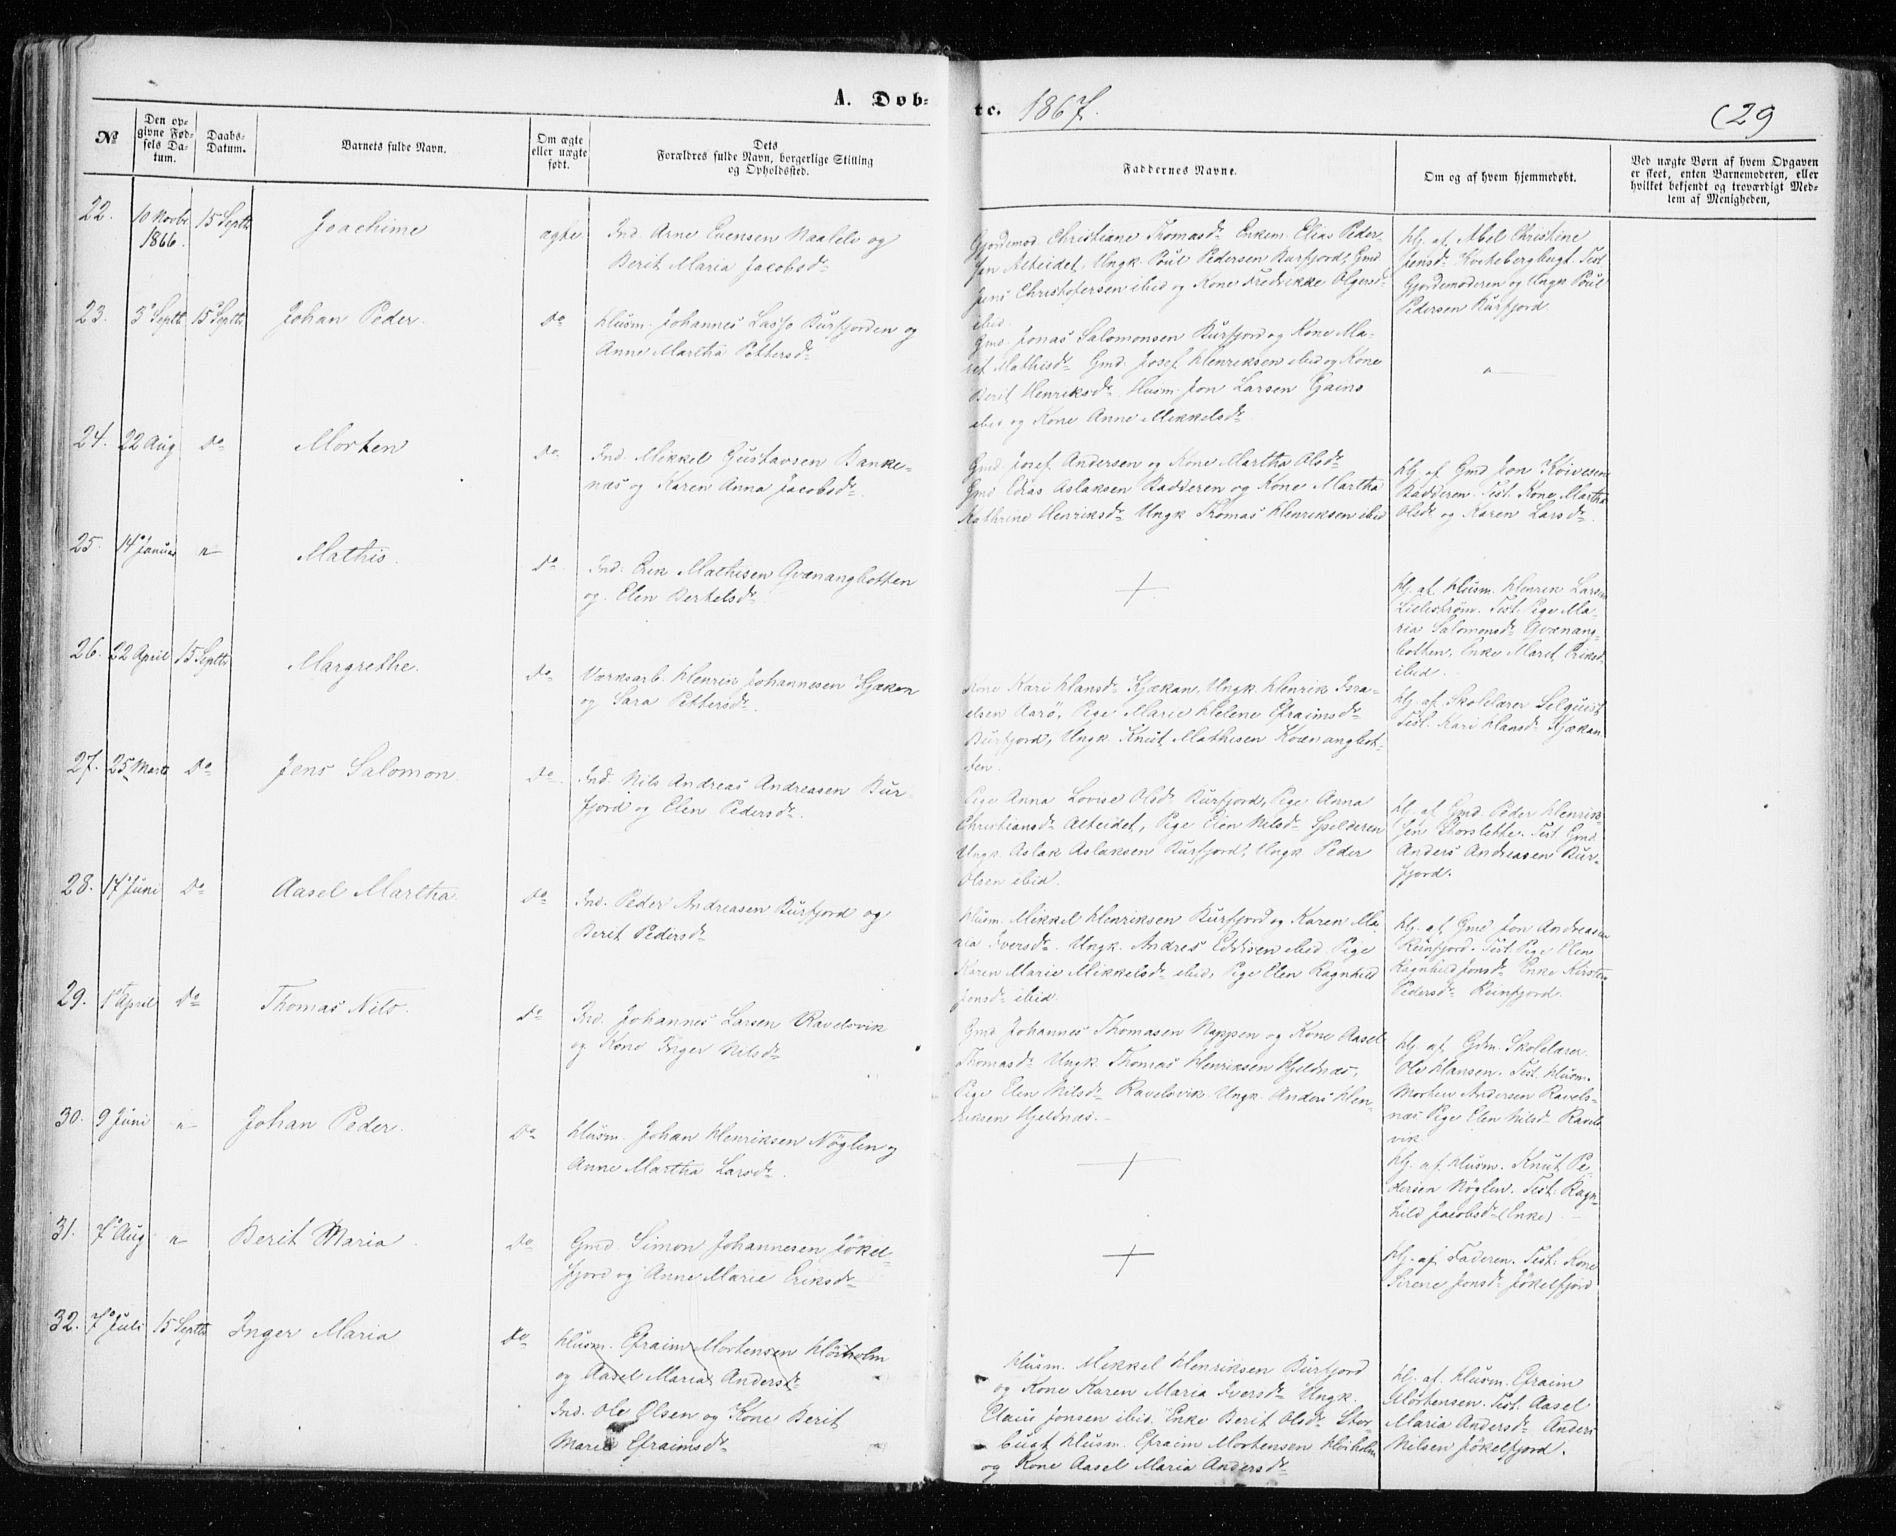 A. Døb-
te. 1867.
(29
№
Den op-
givne Fød-
sels Da-
tum.
Daabs-
Datum.
Barnets fulde Navn.
Om ægte
eller uægte
født.
Dets
Forældres fulde Navn, borgerlige Stilling
og Opholdssted.
Faddernes Navne.
Om og af hvem hjemmedøbt.
Ved uægte Børn af hvem Opgaven
er skeet, enten Barnemoderen, eller
hvilket bekjendt og troværdigt Med-
lem af Menigheden,
22.
10 Novbr
1866.
15 Septb
Joachime
ægte
Ind. Arne Evensen Naalelv og
Berit Maria Jacobsdr
Gjordemod. Christiane Thomasdr Enkem. Elias Peder-
sen Alteidet, Ungk. Poul Pedersen Burfjord, Gmd
Jens Christofersen ibid og Kone Fredrikke Olgersdr
ibid.
Hj. af Abel Christine
Jensdr Kvikebergbugt. Test
Gjordemoderen og Ungk Poul
Pedersen Burfjord
23.
3 Septb
15 Septb
Johan Peder.
Do
Husm. Johannes Lasso Burfjorden og
Anne Martha Pettersdr
Gmd. Jonas Salomonsen Burfjord og Kone Ma-
ret Mathisdr Gmd. Josef Henriksen ibid og Kone
Berit Henriksdr. Husm. Jon Larsen Gains
ibid og Kone Anne Mikkelsdr
"
24.
22 Aug
Do
Morten
Do
Ind. Mikkel Gustavsen Banke-
næs og Karen Anna Jacobsdr.
Gmd. Josef Andersen og Kone Martha Olsdr
Gmd Elias Aslaksen Badderen og Kone Martha
Kathrine Henriksdr Ungk Thomas Henriksen ibid
Hj. af Gmd Jon Koivesen
Badderen. Test. Kone Martha
Olsdr og Karen Larsdr.
25.
14 Januar
"
Mathis.
Do
Ind. Erik Mathisen Qvænangbotten
og Elen Bertelsdr
+
Hj. af Husm. Henrik Larsen
Lillestrøm. Test. Pige Ma-
ria Salomonsdr Qvænang-
botten, Enke Maret Eriksdr
ibid.
26.
22 April
15 Septb
Margrethe.
Do
Værksarb. Henrik Johannesen Kjækan
og Sara Pettersdr.
Kone Kari Hansdr Kjækan, Ungk. Henrik Isra-
elsen Aarö, Pige Marie Helene Efraimsdr
Burfjord, Ungk. Knut Mathisen Kvænangbot-
den.
Hj. af Skolelærer Selquist
Test. Kari Hansdr Kjækan
27.
25 Marts
Do
Jens Salomon
Do
Ind. Nils Andreas Andreasen Bur-
fjord og Elen Pedersdr.
Pige Anna Lovise Olsdr Burfjord, Pige Anna
Christiansdr Alteidet, Pige Elen Nilsdr Spilderen
Ungk. Aslak Aslaksen Burfjord, Ungk Peder
Olsen ibid.
Hj. af Gmd Peder Henrik-
sen Storslette. Test Gmd
Anders Andreasen Bur-
fjord.
28.
17 Juni
Do
Aasel Martha.
Do
Ind. Peder Andreasen Burfjord og
Berit Pedersdr
Husm. Mikkel Henriksen Burfjord og Karen Ma-
ria Iversdr. Ungk. Andres Eddisen ibid Pige
Karen Marie Mikkelsdr ibid, Pige Elen Ragnhild
Jonsdr ibid.
Hj. af Gmd Jon Andreasen
Reinfjord. Test Pige Elen
Ragnhild Jonsdr Enke Kirsten
Pedersdr Reinfjord.
29.
1 April
Do
Thomas Nils.
Do
Ind. Johannes Larsen Ravelsvik
og Kone Inger Nilsdr
Gmd Johannes Thomasen Nappen og Kone Aasel
Thomasdr Ungk. Thomas Henriksen Hjeldnæs,
Pige Elen Nilsdr Ravelsvik. Ungk. Anders Hen-
riksen Hjeldnæs.
Hj. af Gdm. Skolelærer
Ole Hansen. Test. Husm.
Morten Andersen Ravels-
næs Pige Elen Nilsd Ravels
vik
30.
9 Juni
"
Johan Peder.
Do
Husm. Johan Henriksen Nöglen og
Anne Martha Larsdr.
+
Hj. af Husm. Knut Pe-
dersen Nöglen. Test: Ragn-
hild Jacobsdr (Enke).
31.
7 Aug
"
Berit Maria
Do
Gmd. Simon Johannesen Jökel-
fjord og Anne Marie Eriksdr
+
Hj. af Faderen. Test: Kone
Sirene Jonsdr Jökelfjord
32.
7 Juli
15 Septb
Inger Maria
Do
Husm. Efraim Mortensen Höiholm
og Aasel Maria Andersdr
Ind. Ole Olsen og Kone Berit
Marie Efraimsdr
Husm. Mikkel Henriksen Burfjord
og Kone Karen Maria Iversdr Ungk.
Claus Jonsen ibid. Enke Berit Olsdr Stor-
bugt Husm. Efraim Mortensen Höiholm
og Kone Aasel Maria Andersdr
Hj. af Husm. Efraim
Mortensen. Test. Aasel
Maria Andersdr Anders
Nilsen Jökelfjord.